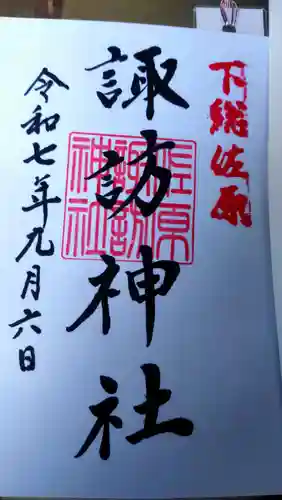 下総佐原
諏訪神社
佐原
諏訪
神社
令和七年九月六日